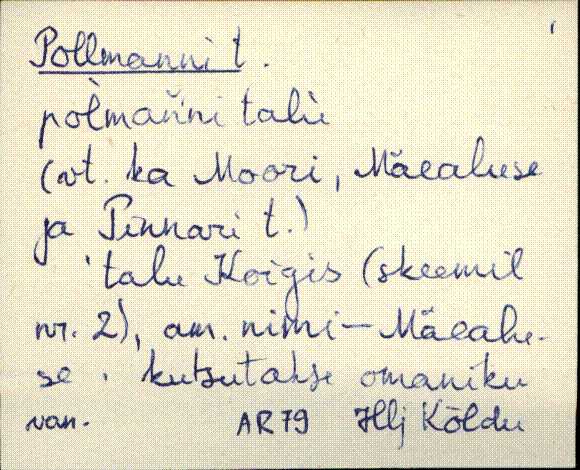 Pollmanni t.
pòlmaňni talù
(vt. ka Moori, Mäealuse
ja Pinnari t.)
talu Koigis (skeemil
nr. 2), am. nimi – Mäealu-
se, kutsutakse omaniku
van. AR79 Hlj Kõldu